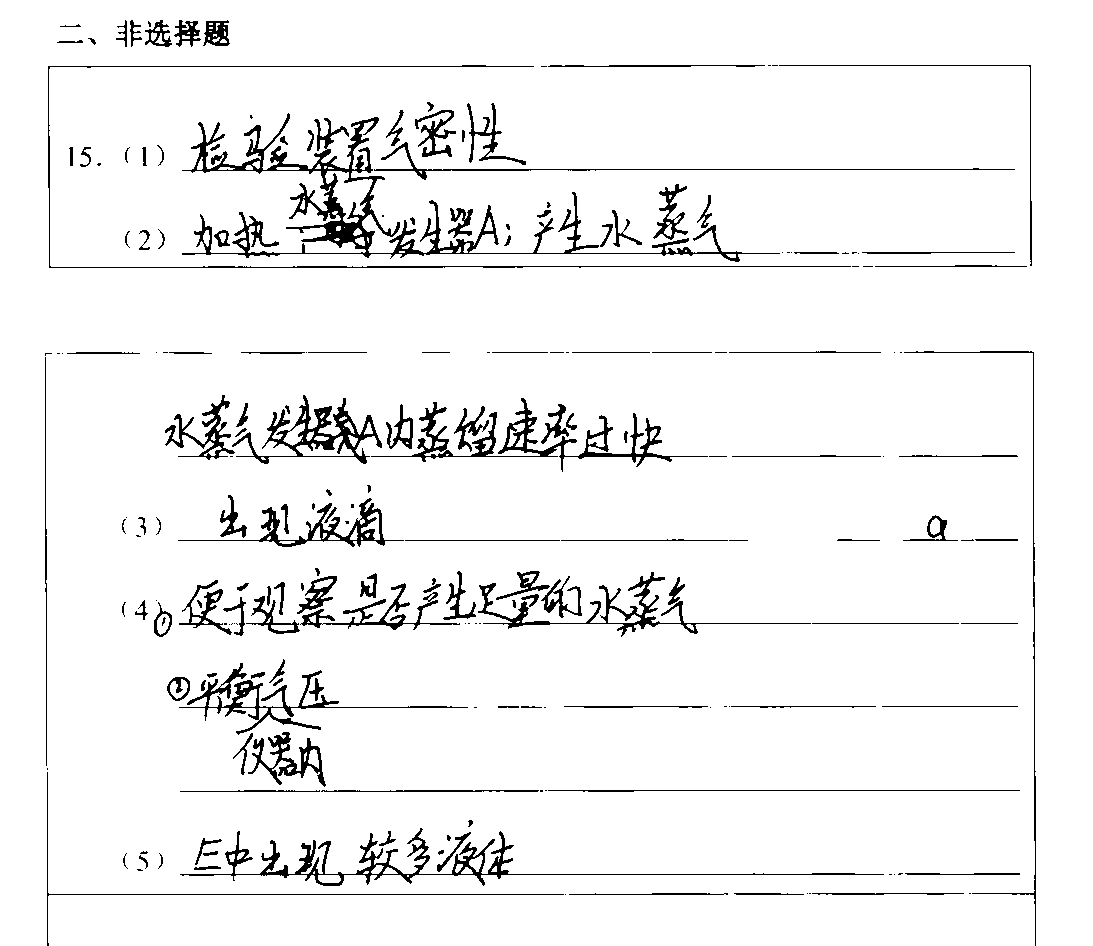 二、非选择题
15.（1）检验装置气密性
（2）加热水蒸气发生器A；产生水蒸气
水蒸气发生器A内蒸馏速率过快
（3）出现液滴 a
（4）①便于观察是否产生足量的水蒸气
②平衡仪器内气压
（5）E中出现较多液体